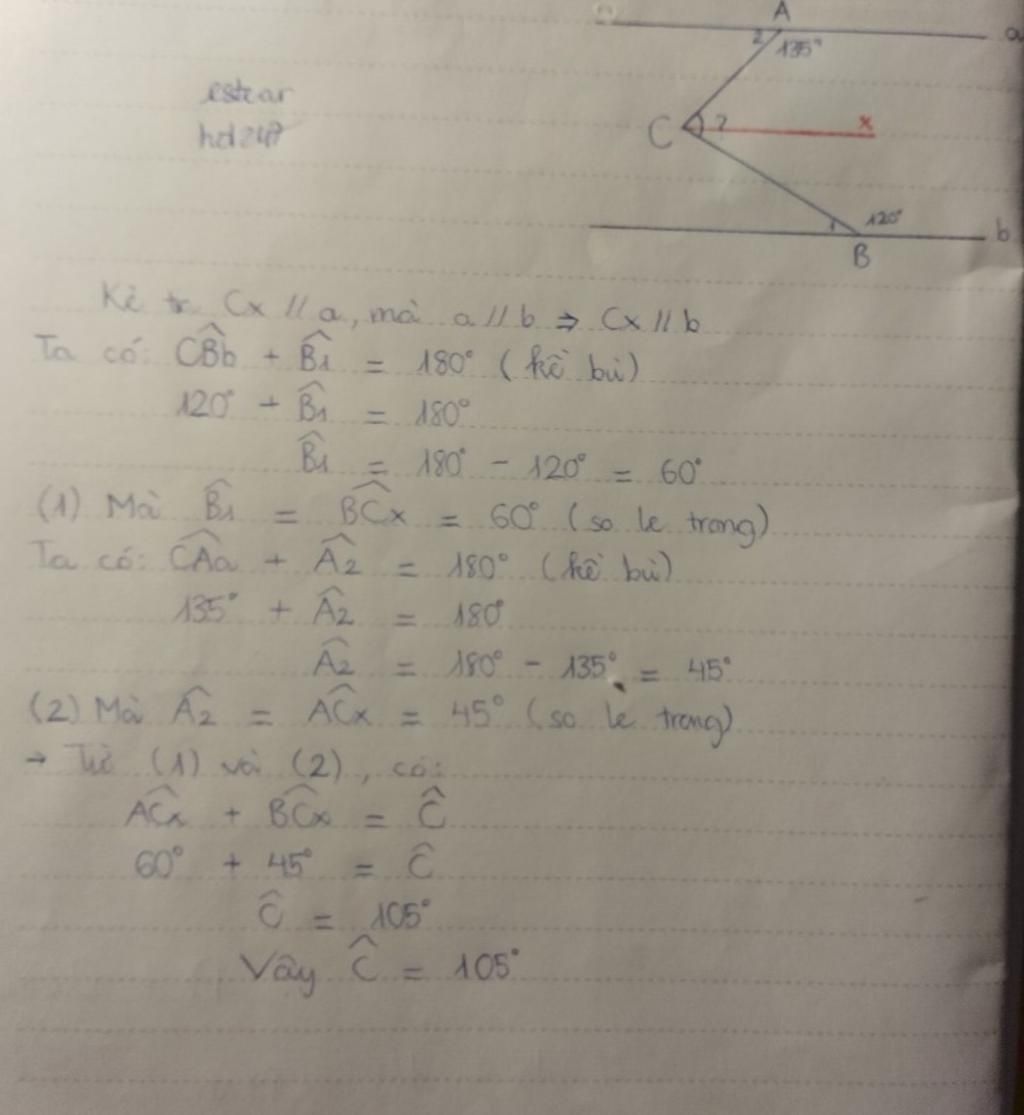 A
a
2
135°
estear
hd247
C
?
x
120°
1
b
B
Kẻ Cx // a, mà a // b ⇒ Cx // b
Ta có: CBb̂ + B̂1 = 180° (kề bù)
120° + B̂1 = 180°
B̂1 = 180° - 120° = 60°
(1) Mà B̂1 = BĈx = 60° (so le trong)
Ta có: CÂa + Â2 = 180° (kề bù)
135° + Â2 = 180°
Â2 = 180° - 135° = 45°
(2) Mà Â2 = AĈx = 45° (so le trong)
→ Từ (1) và (2), có:
AĈx + BĈx = Ĉ
60° + 45° = Ĉ
Ĉ = 105°
Vây Ĉ = 105°